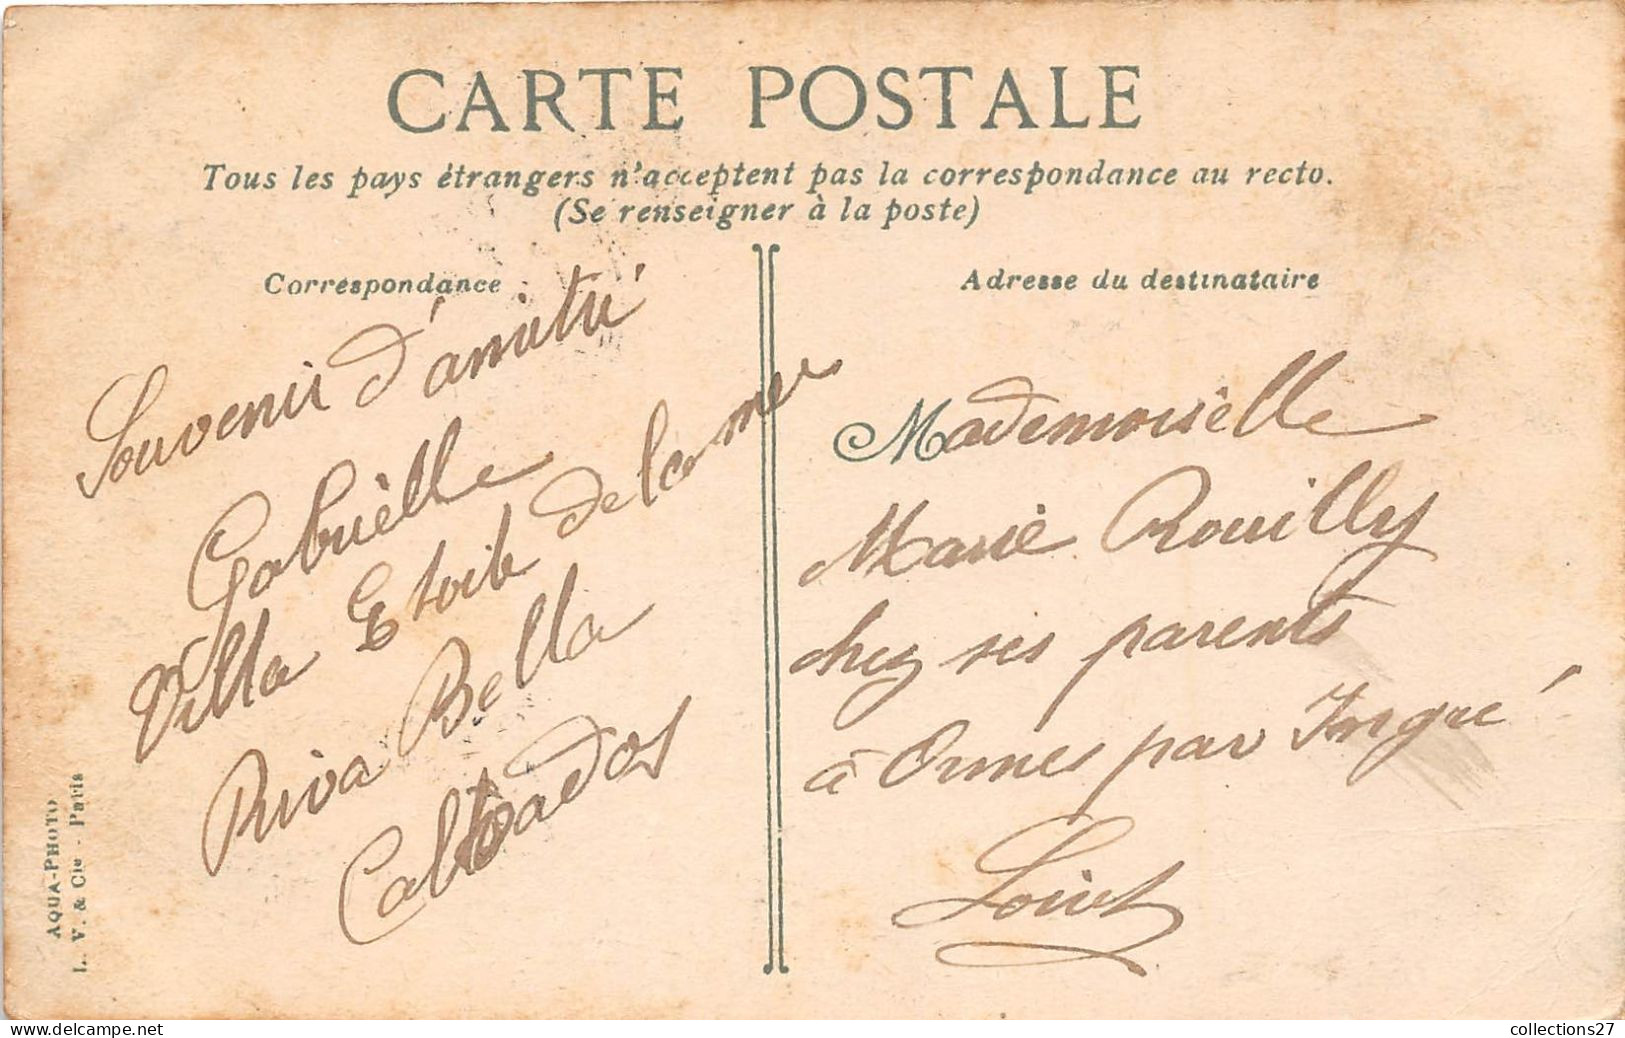 CARTE POSTALE
Tous les pays étrangers n'acceptent pas la correspondance au recto.
(Se renseigner à la poste)
Correspondance
Souvenir d'amitié
Gabrielle
Villa Etoile de la mer
Riva Bella
Calvados
Adresse du destinataire
Mademoiselle
Marie Rouilly
chez ses parents
à Ormes par Ingré
Loiret
AQUA-PHOTO
L. V. & Cie - Paris
collections27